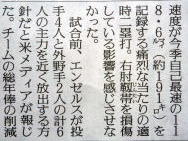 速度が今季自己最速の11
8・6㍄(約191㌔)を
記録する痛烈な当たりの適
時二塁打。右肘靱帯を損傷
している影響を感じさせな
かった。
試合前、エンゼルスが投
手4人と外野手2人の計6
人の主力を近く放出する方
針だと米メディアが報じ
た。チームの総年俸の削減